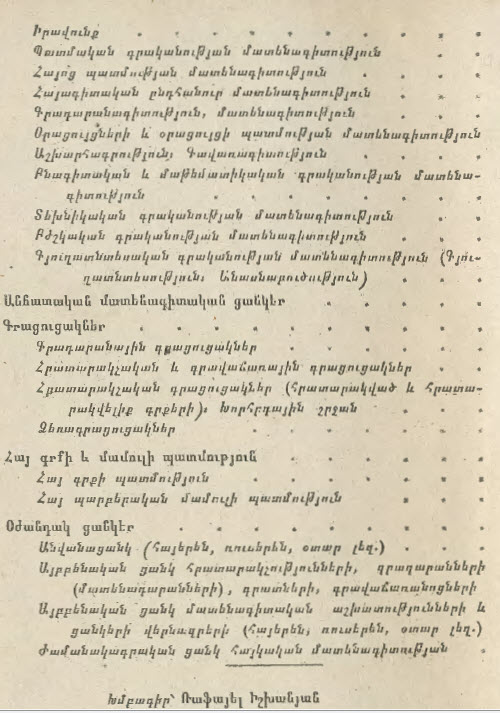 Իրավունք . . . . . . . . .
Պատմական գրականության մատենագիտություն . . .
Հայոց պատմության մատենագիտություն . . . .
Հայագիտական ընդհանուր մատենագիտություն . . .
Գրադարանագիտություն, մատենագիտություն . . .
Օրացույցների և օրացույցի պատմության մատենագիտություն
Աշխարհագրություն, Գավառագիտություն . . . .
Բնագիտական և մաթեմատիկական գրականության մատենա-
գիտություն . . . . . . . .
Տեխնիկական գրականության մատենագիտություն . . .
Բժշկական գրականության մատենագիտություն . . .
Գյուղատնտեսական գրականության մատենագիտություն (Գյու-
ղատնտեսություն, Անասնաբուծություն) . . .
Անհատական մատենագիտական ցանկեր . . . . .
Գրացուցակներ . . . . . . . . .
Գրադարանային գրացուցակներ . . . . . .
Հրատարակչական և գրավաճառային գրացուցակներ . .
Հրատարակչական գրացուցակներ (հրատարակված և հրատա-
րակվելիք գրքերի), Խորհրդային շրջան . . .
Ձեռագրացուցակներ . . . . . . .
Հայ գրքի և մամուլի պատմություն . . . . .
Հայ գրքի պատմություն . . . . . .
Հայ պարբերական մամուլի պատմություն . . . .
Օժանդակ ցանկեր . . . . . . . .
Անվանացանկ (հայերեն, ռուսերեն, օտար լեզ.) . . .
Այբբենական ցանկ հրատարակչությունների, գրադարանների
(մատենադարանների), գրատների, գրավաճառանոցների
Այբբենական ցանկ մատենագիտական աշխատությունների և
ցանկերի վերնագրերի (հայերեն, ռուսերեն, օտար լեզ.)
Ժամանակագրական ցանկ հայկական մատենագիտության .
Խմբագիր՝ Ռաֆայել Իշխանյան